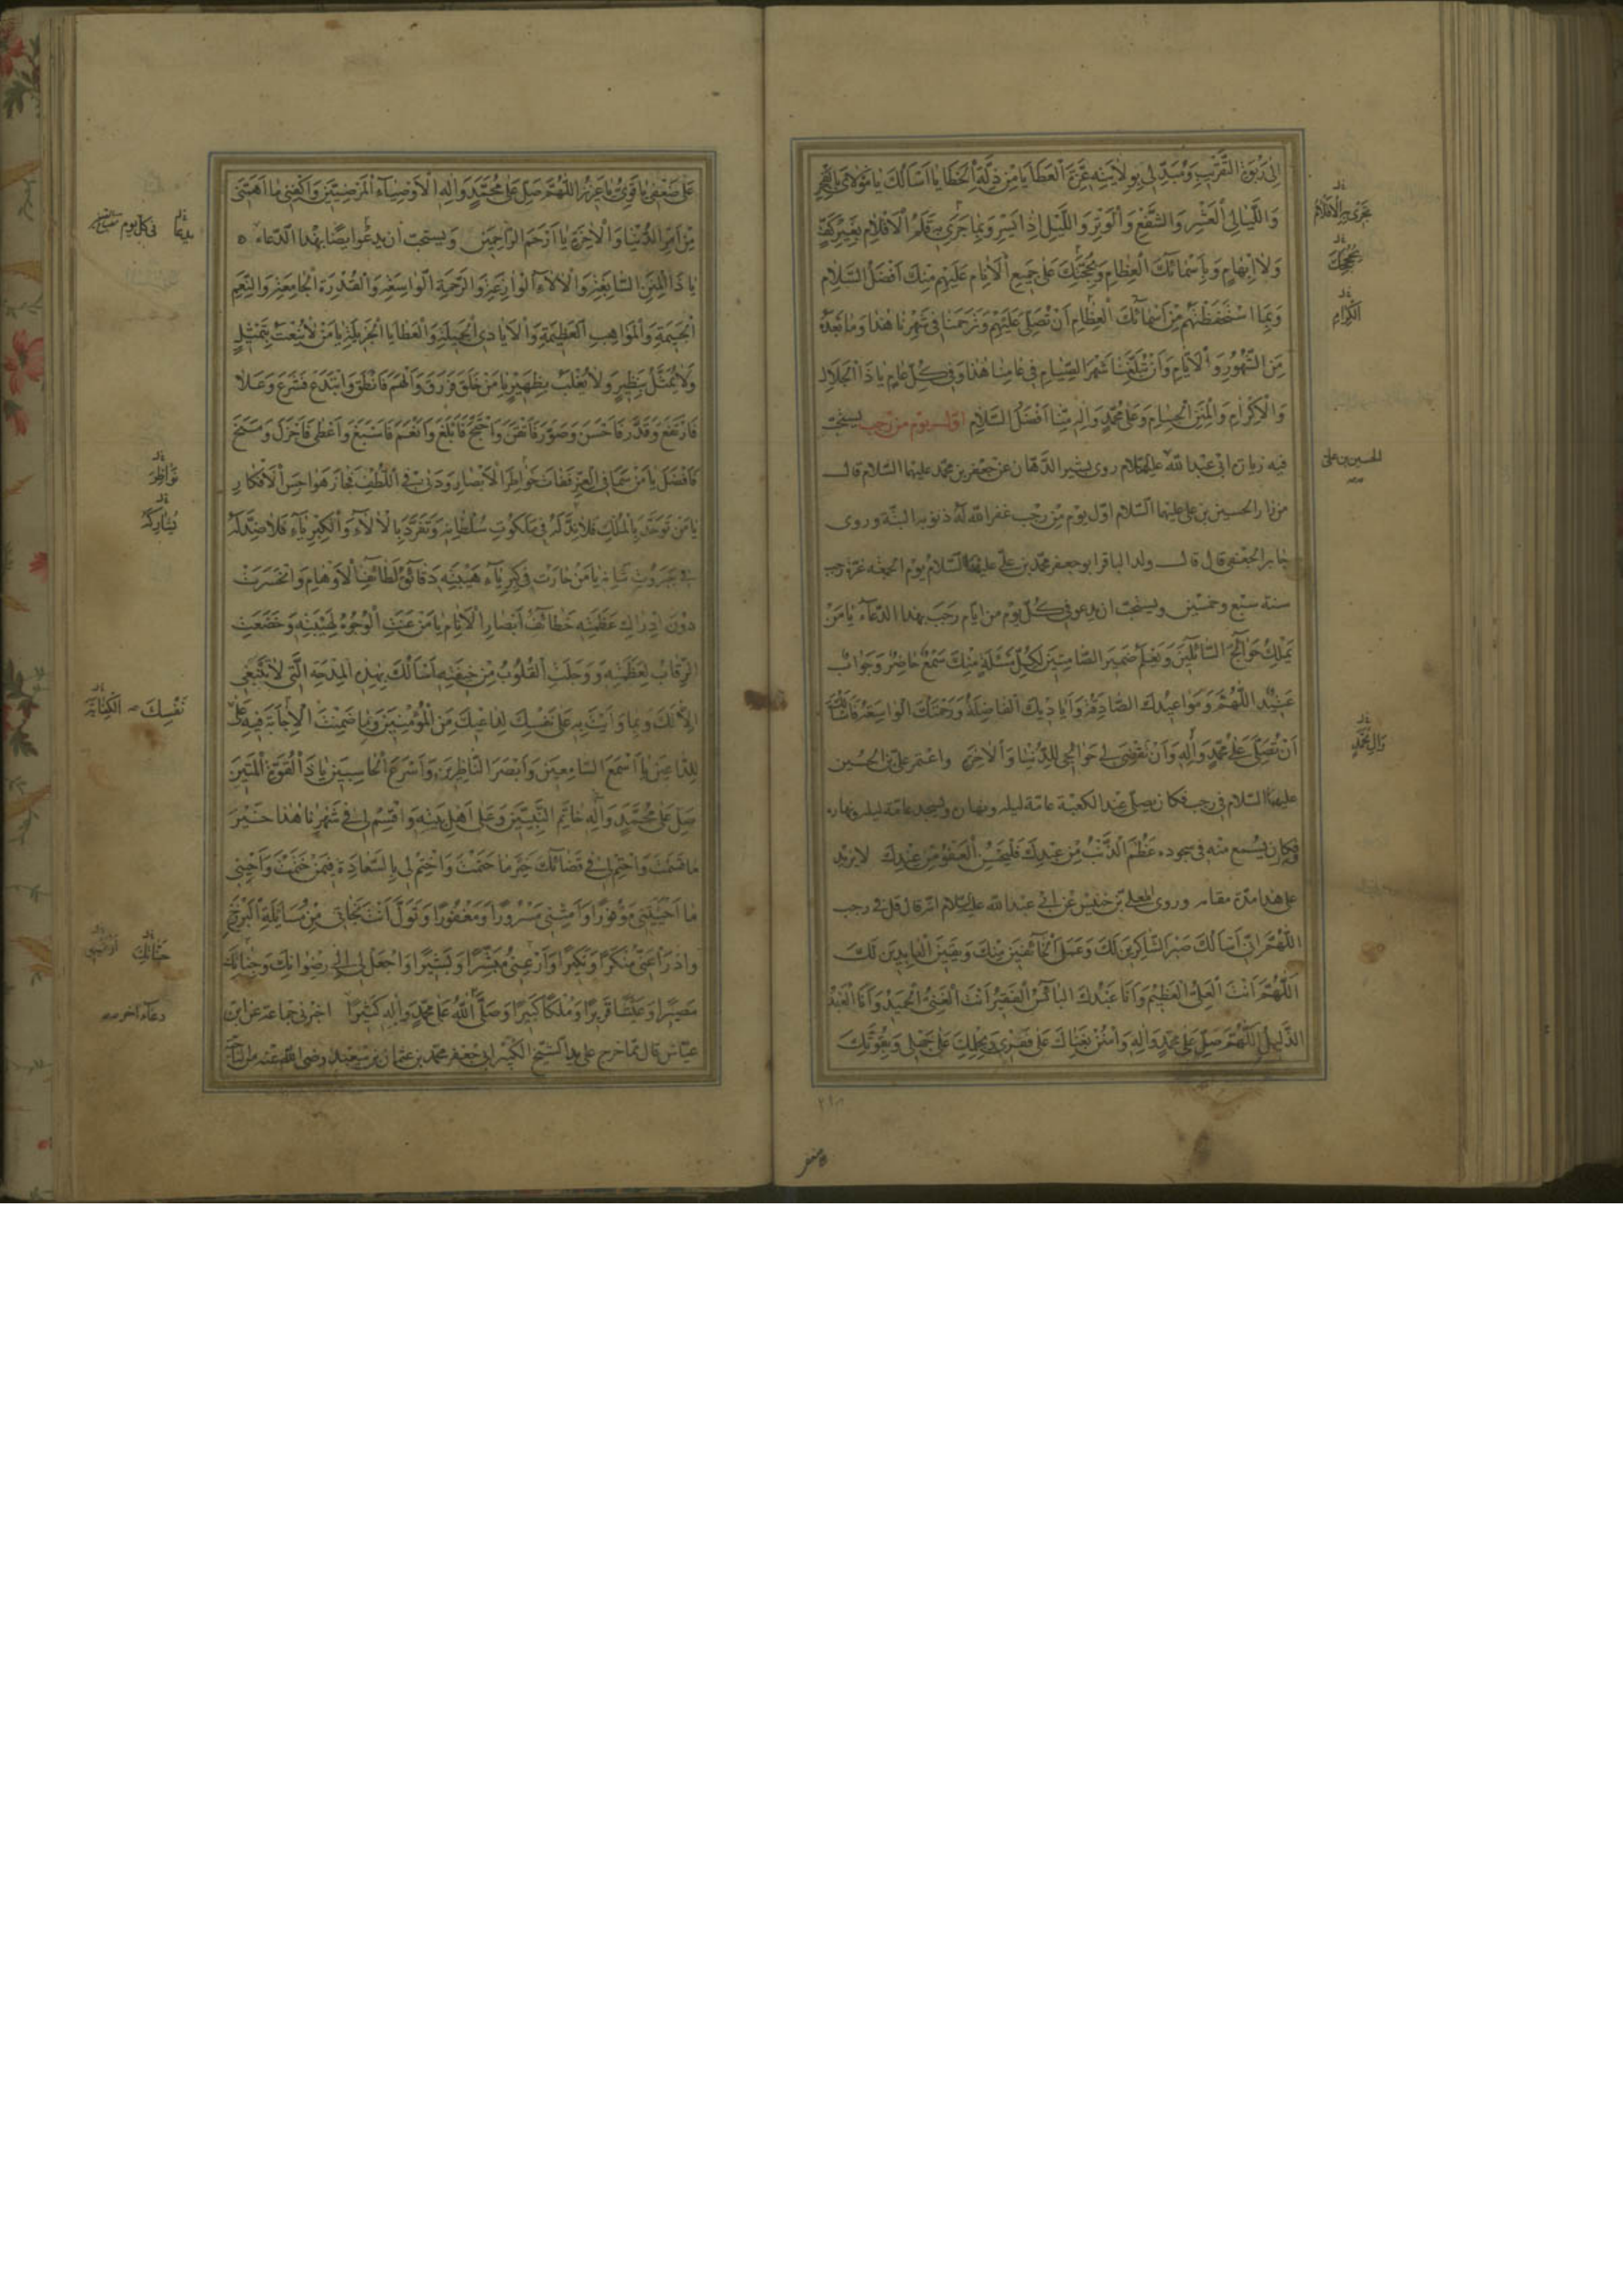 إلى ذنوبه التقريب ومبدلي بولايته غرة العطايا من ذلة الخطايا أسألك يا مولاي بالفجر
وَاللَّيالِي الْعَشْرِ وَالشَّفْعِ وَالْوَتْرِ وَاللَّيْلِ إِذا يَسْرِ وَبِما جَرى بِهِ قَلَمُ الْأَقْلامِ بِغَيْرِ كَفٍّ
وَلا إِبْهامٍ وَبِأَسْمائِكَ الْعِظامِ وَبِحُجَّتِكَ عَلى جَمِيعِ الْأَنامِ عَلَيْهِمْ مِنْكَ أَفْضَلُ السَّلامِ
وَبِمَا اسْتَحْفَظْتَهُمْ مِنْ أَسْمائِكَ الْعِظامِ أَنْ تُصَلِّيَ عَلَيْهِمْ وَتَرْحَمَنا فِي شَهْرِنا هذا وَما بَعْدَهُ
مِنَ الشُّهُورِ وَالْأَيّامِ وَأَنْ تُبَلِّغَنا شَهْرَ الصِّيامِ فِي عامِنا هذا وَفِي كُلِّ عامٍ يا ذَا الْجَلالِ
وَالْإِكْرامِ وَالْمِنَنِ الْجِسامِ وَعَلى مُحَمَّدٍ وَآلِهِ مِنّا أَفْضَلُ السَّلامِ اول يوم من رجب يستحبّ
فيه زيارة ابي عبد الله عليه السلام روى بشير الدهان عن جعفر بن محمد عليهما السلام قال
من زار الحسين بن علي عليهما السلام اوّل يوم من رجب غفر الله له ذنوبه البتة وروى
جابر الجعفي قال قال ولد الباقر ابو جعفر محمد بن علي عليهما السلام يوم الجمعة غرة رجب
سنة سبع وخمسين ويستحبّ ان يدعو في كلّ يوم من ايام رجب بهذا الدعاء يا مَنْ
يَمْلِكُ حَوائِجَ السّائِلِينَ وَيَعْلَمُ ضَمِيرَ الصّامِتِينَ لِكُلِّ مَسْئَلَةٍ مِنْكَ سَمْعٌ حاضِرٌ وَجَوابٌ
عَتِيدٌ اللّهُمَّ وَمَواعِيدُكَ الصّادِقَةُ وَأَيادِيكَ الْفاضِلَةُ وَرَحْمَتُكَ الْواسِعَةُ فَأَسْأَلُكَ
أَنْ تُصَلِّيَ عَلى مُحَمَّدٍ وَآلِهِ وَأَنْ تَقْضِيَ لِي حَوائِجِي لِلدُّنْيا وَالْآخِرَةِ واعتمر علي بن الحسين
عليهما السلام في رجب فكان يصلّي عند الكعبة عامة ليله ونهاره ويسجد عامة ليله ونهاره
فكان يسمع منه في سجوده عَظُمَ الذَّنْبُ مِنْ عَبْدِكَ فَلْيَحْسُنِ الْعَفْوُ مِنْ عِنْدِكَ لا يزيد
على هذا مدة مقامه وروى المعلّى بن خنيس عن ابي عبد الله عليه السلام انه قال قل في رجب
اللّهُمَّ إِنِّي أَسْأَلُكَ صَبْرَ الشّاكِرِينَ لَكَ وَعَمَلَ الْخائِفِينَ مِنْكَ وَيَقِينَ الْعابِدِينَ لَكَ
اللّهُمَّ أَنْتَ الْعَلِيُّ الْعَظِيمُ وَأَنا عَبْدُكَ الْبائِسُ الْفَقِيرُ أَنْتَ الْغَنِيُّ الْحَمِيدُ وَأَنا الْعَبْدُ
الذَّلِيلُ اللّهُمَّ صَلِّ عَلى مُحَمَّدٍ وَآلِهِ وَامْنُنْ بِغِناكَ عَلى فَقْرِي وَبِحِلْمِكَ عَلى جَهْلِي وَبِقُوَّتِكَ
بحججك
الكرام
الحسين بن علي
وآل محمد
عَلى ضَعْفِي يا قَوِيُّ يا عَزِيزُ اللّهُمَّ صَلِّ عَلى مُحَمَّدٍ وَآلِهِ الْأَوْصِياءِ الْمَرْضِيِّينَ وَاكْفِنِي ما أَهَمَّنِي
مِنْ أَمْرِ الدُّنْيا وَالْآخِرَةِ يا أَرْحَمَ الرّاحِمِينَ ويستحبّ أن يدعوا ايضًا بهذا الدعاء
يا ذَا الْمِنَنِ السّابِغَةِ وَالْآلاءِ الْوازِعَةِ وَالرَّحْمَةِ الْواسِعَةِ وَالْقُدْرَةِ الْجامِعَةِ وَالنِّعَمِ
الْجَسِيمَةِ وَالْمَواهِبِ الْعَظِيمَةِ وَالْأَيادِي الْجَمِيلَةِ وَالْعَطايا الْجَزِيلَةِ يا مَنْ لا يُنْعَتُ بِتَمْثِيلٍ
وَلا يُمَثَّلُ بِنَظِيرٍ وَلا يُغْلَبُ بِظَهِيرٍ يا مَنْ خَلَقَ فَرَزَقَ وَأَلْهَمَ فَأَنْطَقَ وَابْتَدَعَ فَشَرَعَ وَعَلا
فَارْتَفَعَ وَقَدَّرَ فَأَحْسَنَ وَصَوَّرَ فَأَتْقَنَ وَاحْتَجَّ فَأَبْلَغَ وَأَنْعَمَ فَأَسْبَغَ وَأَعْطى فَأَجْزَلَ وَمَنَحَ
فَأَفْضَلَ يا مَنْ سَما فِي الْعِزِّ فَفاتَ خَواطِرَ الْأَبْصارِ وَدَنى فِي اللُّطْفِ فَجازَ هَواجِسَ الْأَفْكارِ
يا مَنْ تَوَحَّدَ بِالْمُلْكِ فَلا نِدَّ لَهُ فِي مَلَكُوتِ سُلْطانِهِ وَتَفَرَّدَ بِالْآلاءِ وَالْكِبْرِياءِ فَلا ضِدَّ لَهُ
فِي جَبَرُوتِ شَأْنِهِ يا مَنْ حارَتْ فِي كِبْرِياءِ هَيْبَتِهِ دَقائِقُ لَطائِفِ الْأَوْهامِ وَانْحَسَرَتْ
دُونَ إِدْراكِ عَظَمَتِهِ خَطائِفُ أَبْصارِ الْأَنامِ يا مَنْ عَنَتِ الْوُجُوهُ لِهَيْبَتِهِ وَخَضَعَتِ
الرِّقابُ لِعَظَمَتِهِ وَوَجِلَتِ الْقُلُوبُ مِنْ خِيفَتِهِ أَسْأَلُكَ بِهذِهِ الْمِدْحَةِ الَّتِي لا تَنْبَغِي
إِلّا لَكَ وَبِما وَأَيْتَ بِهِ عَلى نَفْسِكَ لِداعِيكَ مِنَ الْمُؤْمِنِينَ وَبِما ضَمِنْتَ الْإِجابَةَ فِيهِ عَلى
لِلدّاعِينَ يا أَسْمَعَ السّامِعِينَ وَأَبْصَرَ النّاظِرِينَ وَأَسْرَعَ الْحاسِبِينَ يا ذَا الْقُوَّةِ الْمَتِينَ
صَلِّ عَلى مُحَمَّدٍ وَآلِهِ خاتَمِ النَّبِيِّينَ وَعَلى أَهْلِ بَيْتِهِ وَاقْسِمْ لِي فِي شَهْرِنا هذا خَيْرَ
ما قَسَمْتَ وَاحْتِمْ لِي فِي قَضائِكَ خَيْرَ ما حَتَمْتَ وَاخْتِمْ لِي بِالسَّعادَةِ فِيمَنْ خَتَمْتَ وَأَحْيِنِي
ما أَحْيَيْتَنِي مَوْفُورًا وَأَمِتْنِي مَسْرُورًا وَمَغْفُورًا وَتَوَلَّ أَنْتَ نَجاتِي مِنْ مُسائَلَةِ الْبَرْزَخِ
وَادْرَأْ عَنِّي مُنْكَرًا وَنَكِيرًا وَأَرْعَيْنِي مُبَشِّرًا وَبَشِيرًا وَاجْعَلْ لِي إِلى رِضْوانِكَ وَجِنانِكَ
مَصِيرًا وَعَيْشًا قَرِيرًا وَمُلْكًا كَبِيرًا وَصَلَّى اللهُ عَلى مُحَمَّدٍ وَآلِهِ كَثِيرًا اخبرني جماعة عن ابن
عيّاش قال ممّا خرج على يد الشيخ الكبير ابي جعفر محمد بن عثمان بن سعيد رضي الله عنه من الناحية
في كل يوم
نواظر
نفسك
جنانك
دعاء آخر